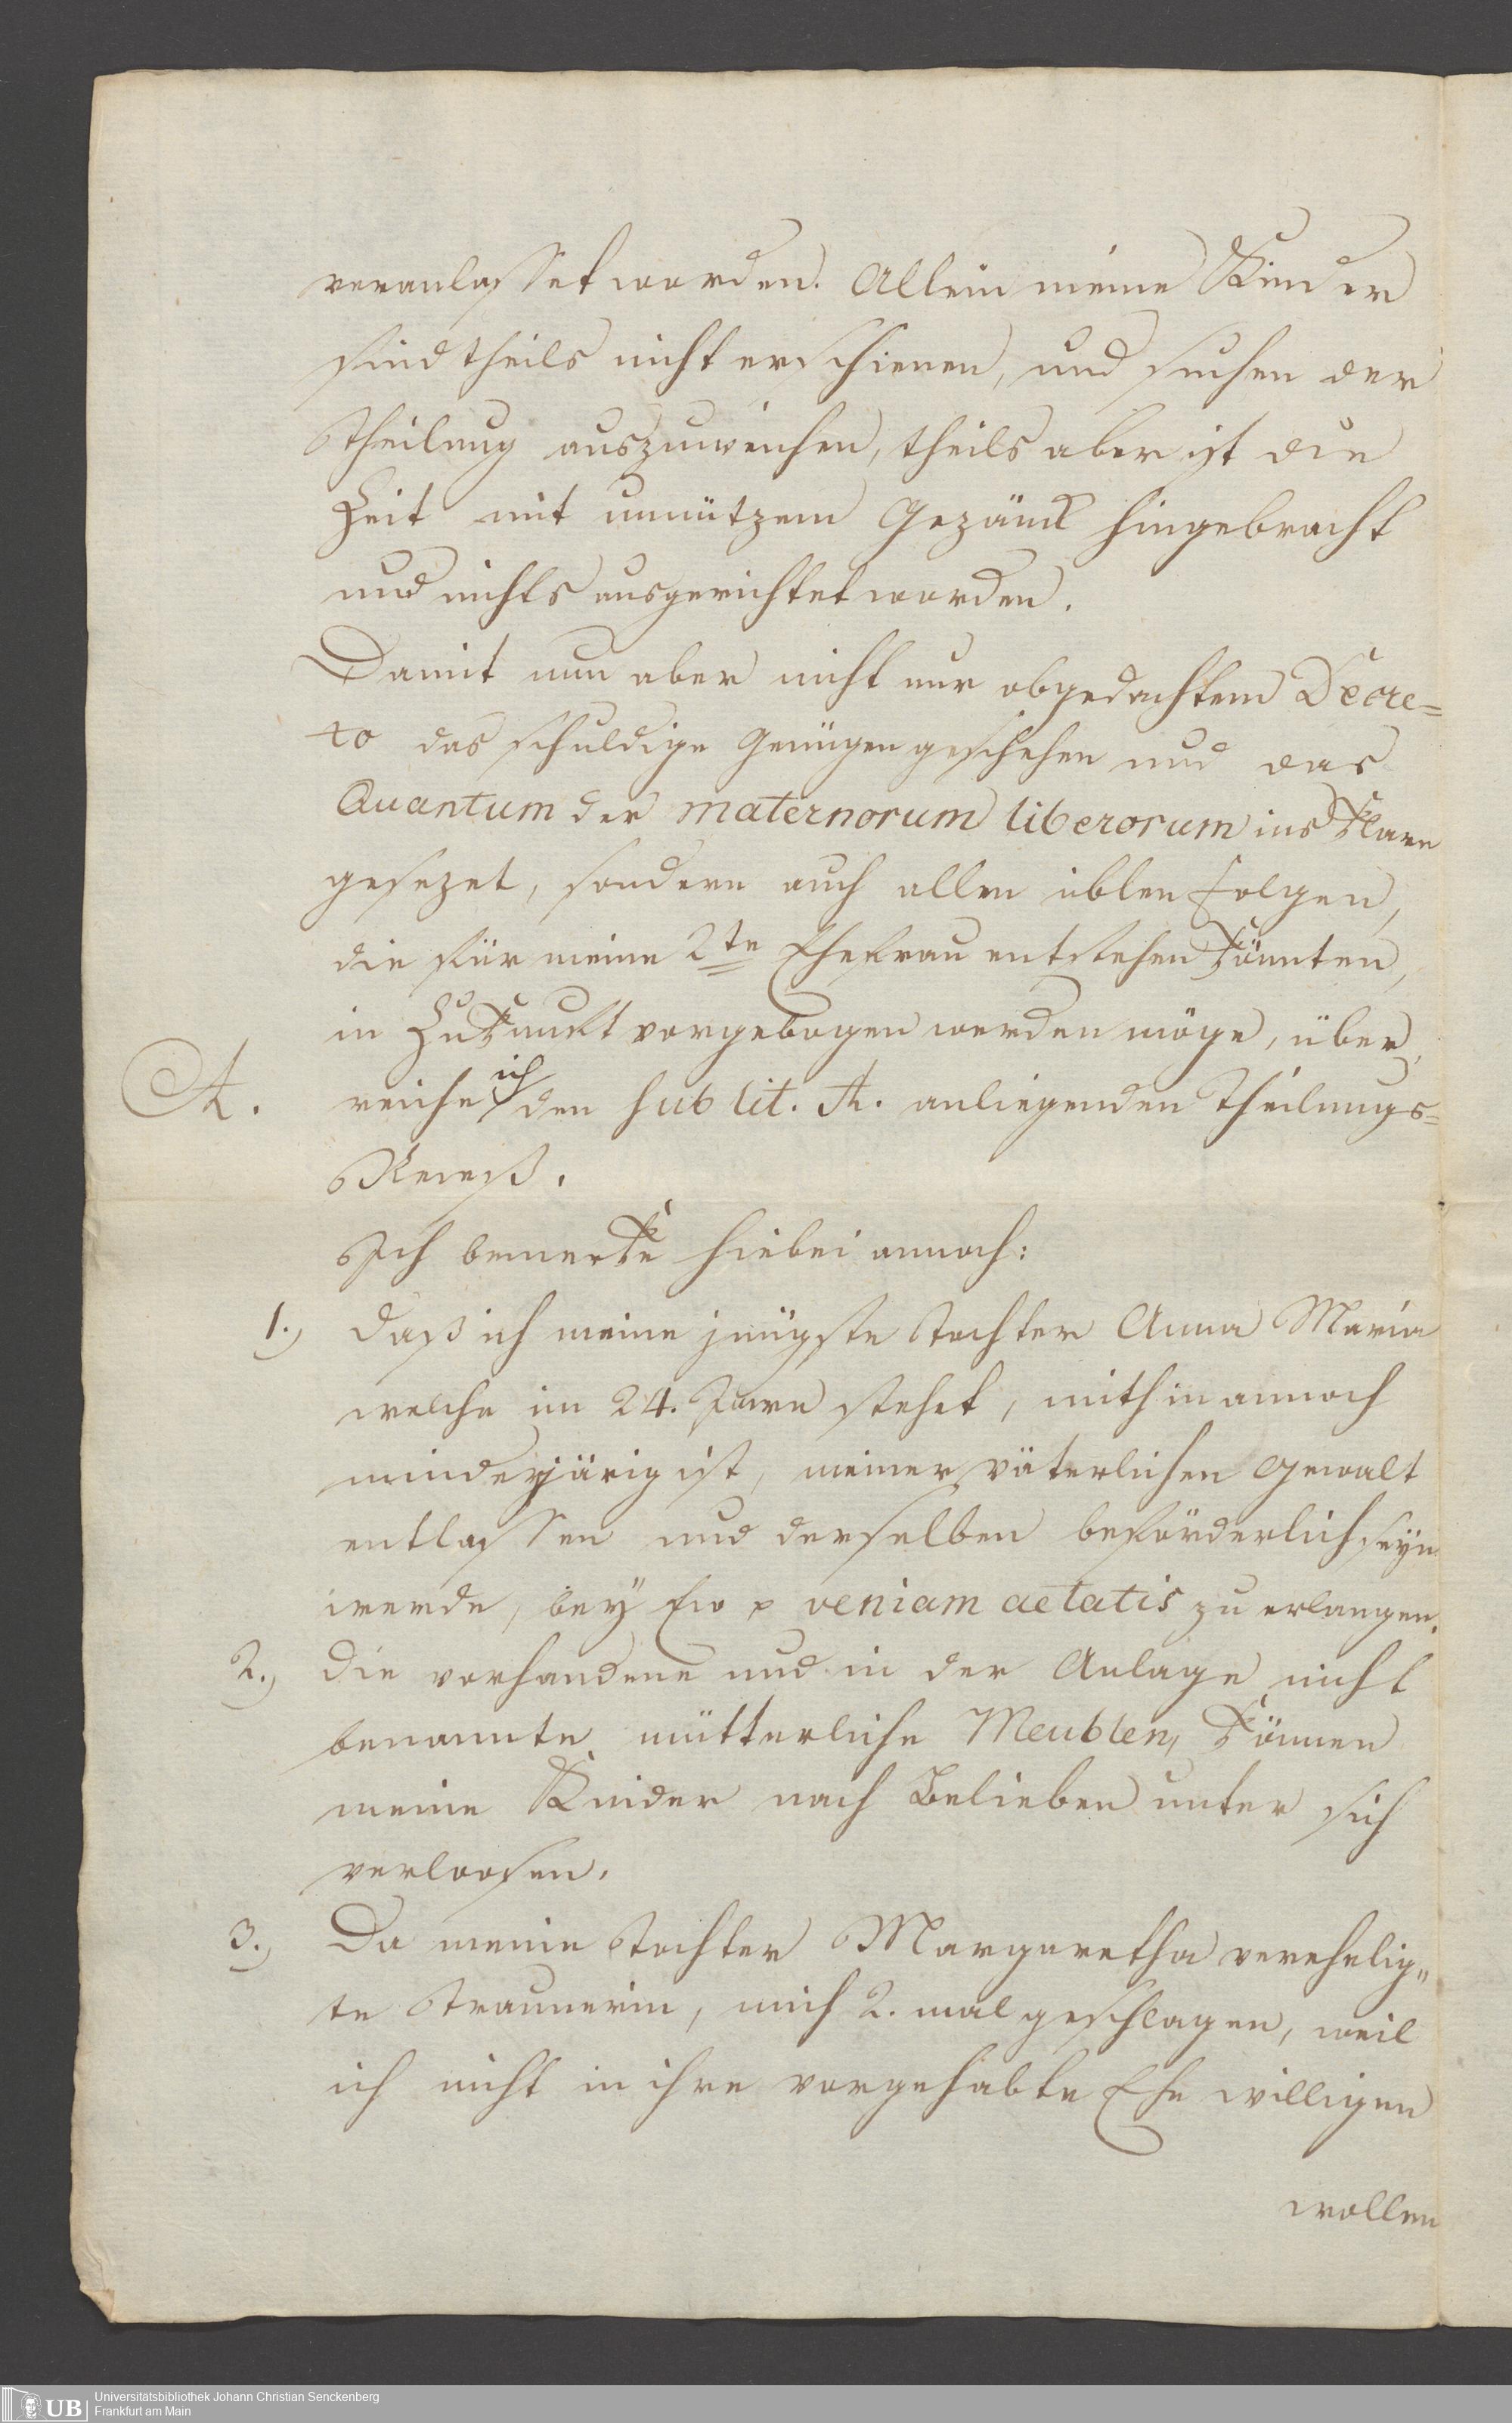 veranlasset worden. Allein meine Kinder
sind theils nicht erschienen, und suchen der
Theilung auszuweichen, theils aber ist die
Zeit mit unnützem Gezänck hingebracht
und nichts ausgerichtet worden.
Damit nun aber nicht nur obgedachtem Decre=
to das schuldige Genügen geschehen und das
Quantum der maternorum liberorum ins Klare
gesezet, sondern auch allen üblen Folgen,
die für meine 2te Ehefrau entstehen könnten,
in Zukunft vorgebogen werden möge, über
A. reiche ich den sub lit. A. anliegenden Theilungs=
Receß.
Ich bemerke hiebei annoch:
1.) daß ich meine jüngste Tochter Anna Maria
welche im 24. Jare stehet, mithin annoch
minderjärig ist, meiner väterlichen Gewalt
entlassen und derselben beförderlich seyn
werde, bey Ew p veniam aetatis zu erlangen.
2.) die vorhandene und in der Anlage nicht
benannte mütterliche Meublen, können
meine Kinder nach Belieben unter sich
verloosen.
3.) Da meine Tochter Margaretha verehelig„
te Traunerin, mich 2. mal geschlagen, weil
ich nicht in ihre vorgehabte Ehe willigen
wollen
UB Universitätsbibliothek Johann Christian Senckenberg
Frankfurt am Main